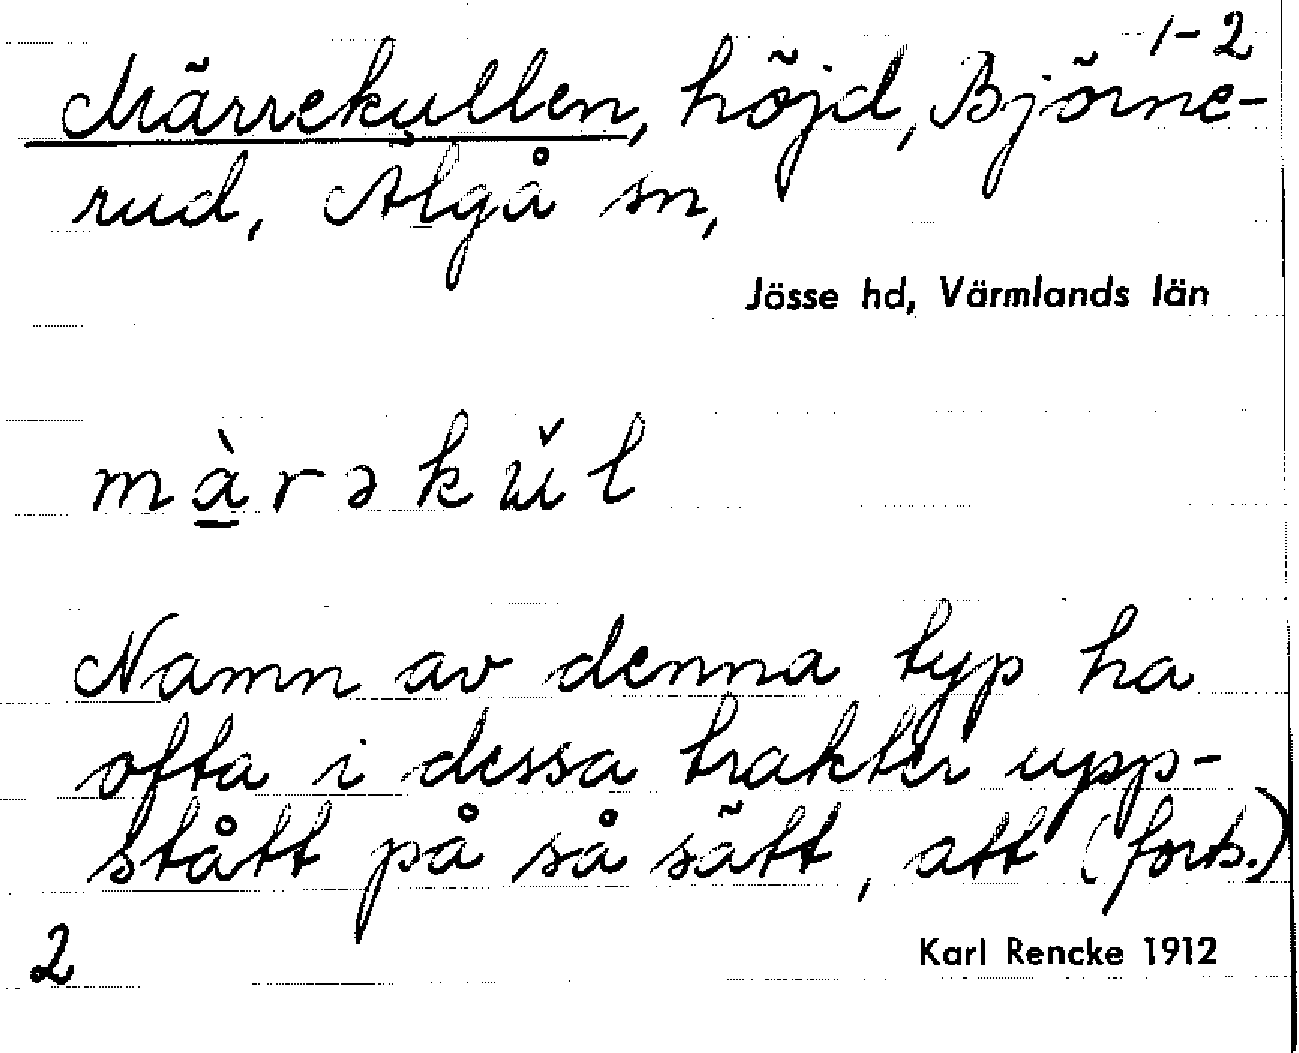 1-2
Märrekullen, höjd, Björne-
rud, Älgå sn,
Jösse hd, Värmlands län
mà̱rəkǔl
Namn av denna typ ha
ofta i dessa trakter upp-
stått på så sätt, att (forts.)
2
Karl Rencke 1912